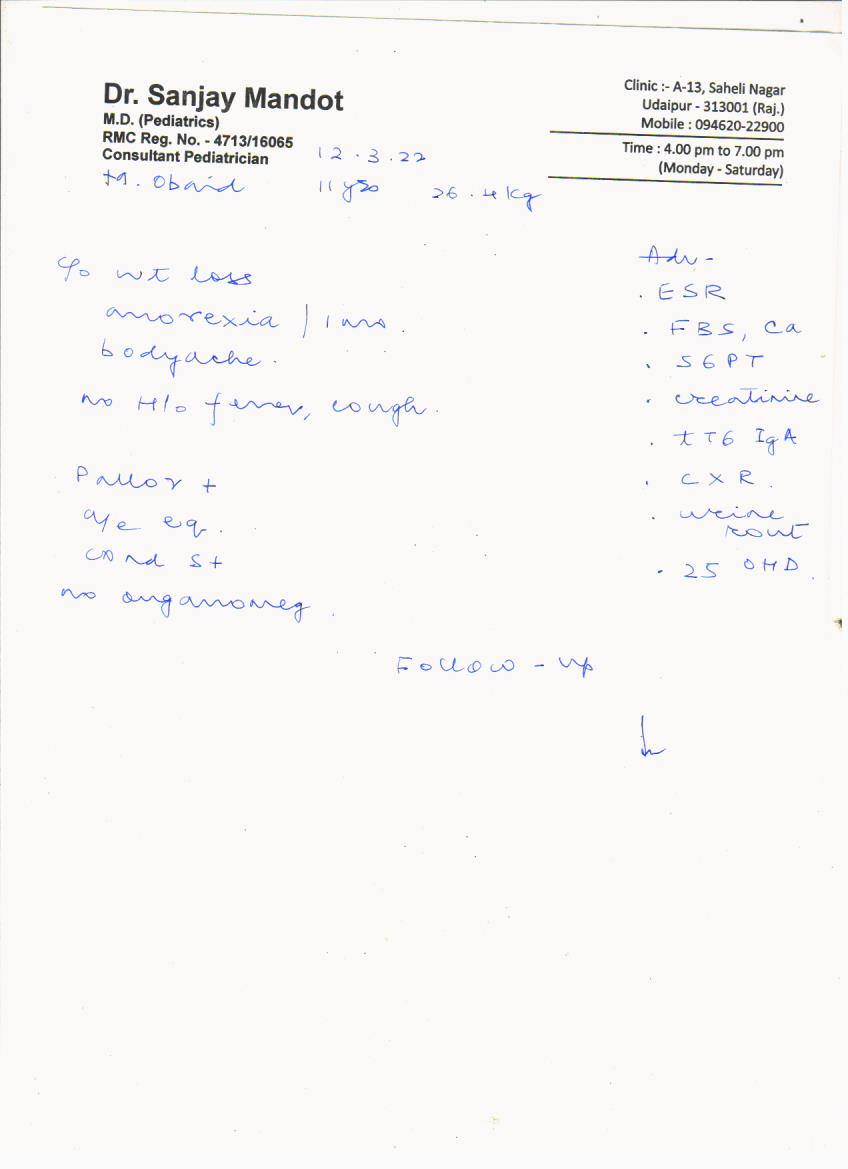 Dr. Sanjay Mandot
M.D. (Pediatrics)
RMC Reg. No. - 4713/16065
Consultant Pediatrician
Clinic :- A-13, Saheli Nagar
Udaipur - 313001 (Raj.)
Mobile : 094620-22900
Time : 4.00 pm to 7.00 pm
(Monday - Saturday)
12.3.22
Obaid 11 yrs 26.4 kg
c/o wt loss
anorexia /
bodyache.
no H/o fever, cough.
Pallor +
a/e eq.
S+
no organomeg.
Adv -
. ESR
. FBS, Ca
. SGPT
. creatinine
. tTG IgA
. CXR.
. urine
rout
. 25 OHD.
Follow - up